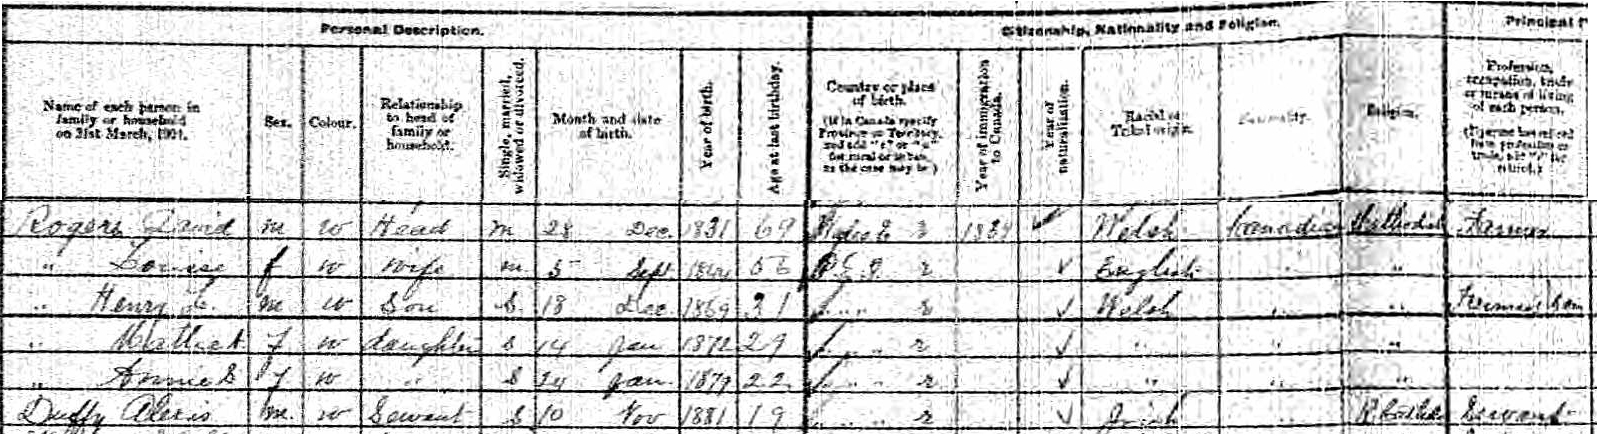 Personal Description. Citizenship, Nationality and Religion. Principal
Name of each person in family or household on 31st March, 1901. Sex. Colour. Relationship to head of family or household. Single, married, widowed or divorced. Month and date of birth. Year of birth. Age at last birthday. Country or place of birth. (If in Canada specify Province or Territory, and add "r" or "u" for rural or urban, as the case may be) Year of immigration to Canada. Year of naturalization. Racial or Tribal origin. Nationality. Religion. Profession, occupation, trade or means of living of each person.
Rogers David m w Head m 28 Dec. 1831 69 r 1839 ✓ Welsh Canadian Methodist Farmer
" Louise f w wife m 5 Sept P.E.I. r ✓ English "
" Henry m w Son S. 18 Dec 1869 31 " " r ✓ Welsh " " Farmer's Son
" f w daughter s 14 Jan 29 " " r ✓ " " "
" Annie S f w " S 24 Jan. 1879 22 " " r ✓ " " "
Duffy m. w Servant S 10 Nov 1881 19 " " r ✓ Irish " Servant